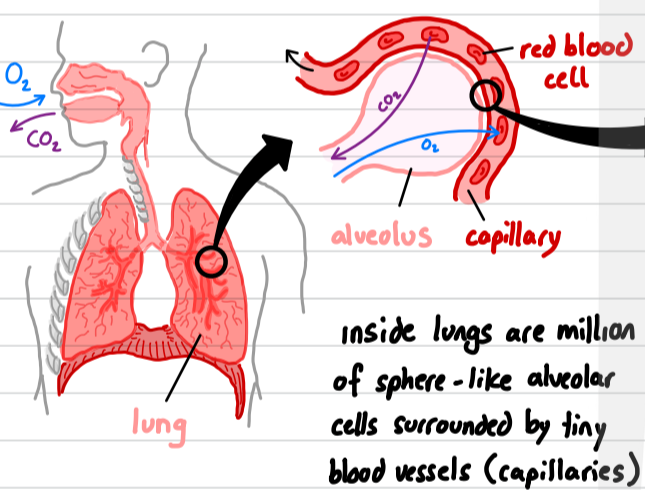 O₂
CO₂
red blood
cell
CO₂
O₂
alveolus
capillary
lung
inside lungs are million
of sphere-like alveolar
cells surrounded by tiny
blood vessels (capillaries)